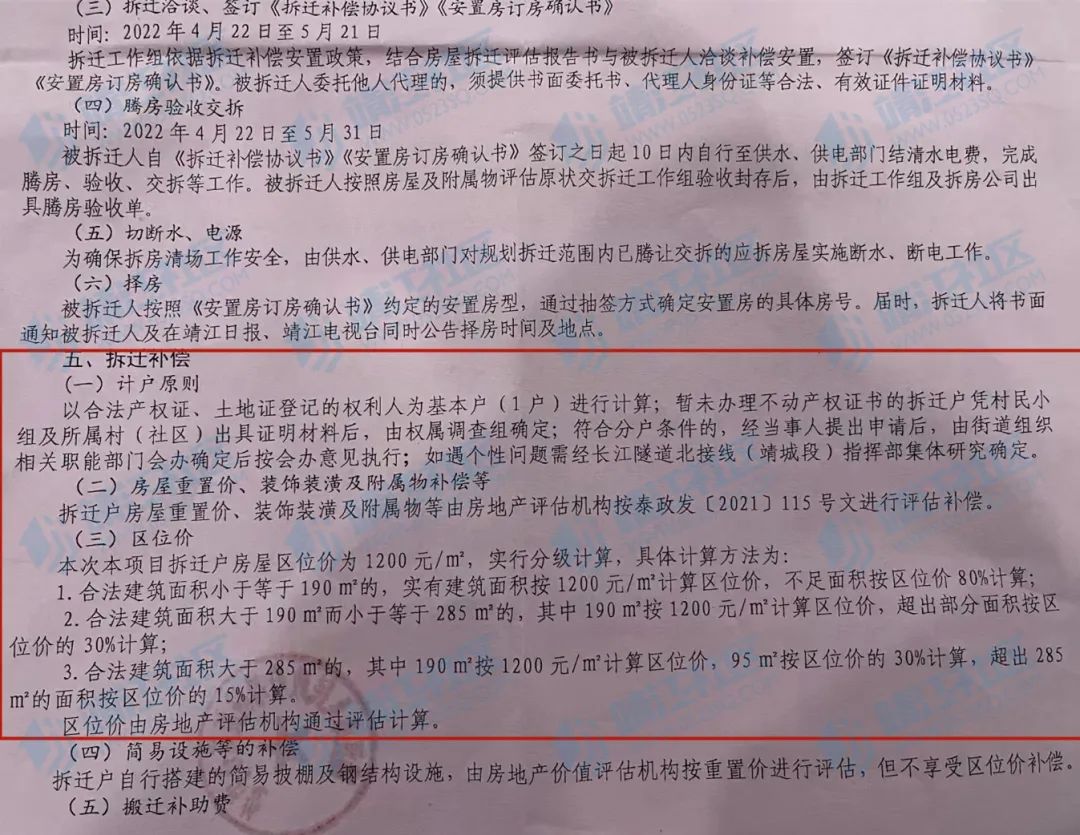 (三)拆迁洽谈、签订《拆迁补偿协议书》《安置房订房确认书》
时间：2022年4月22日至5月21日
拆迁工作组依据拆迁补偿安置政策，结合房屋拆迁评估报告书与被拆迁人洽谈补偿安置，签订《拆迁补偿协议书》
《安置房订房确认书》。被拆迁人委托他人代理的，须提供书面委托书、代理人身份证等合法、有效证件证明材料。
(四)腾房验收交拆
时间：2022年4月22日至5月31日
被拆迁人自《拆迁补偿协议书》《安置房订房确认书》签订之日起10日内自行至供水、供电部门结清水电费，完成
腾房、验收、交拆等工作。被拆迁人按照房屋及附属物评估原状交拆迁工作组验收封存后，由拆迁工作组及拆房公司出
具腾房验收单。
(五)切断水、电源
为确保拆房清场工作安全，由供水、供电部门对规划拆迁范围内已腾让交拆的应拆房屋实施断水、断电工作。
(六)择房
被拆迁人按照《安置房订房确认书》约定的安置房型，通过抽签方式确定安置房的具体房号。届时，拆迁人将书面
通知被拆迁人及在靖江日报、靖江电视台同时公告择房时间及地点。
五、拆迁补偿
(一)计户原则
以合法产权证、土地证登记的权利人为基本户(1户)进行计算；暂未办理不动产权证书的拆迁户凭村民小
组及所属村(社区)出具证明材料后，由权属调查组确定；符合分户条件的，经当事人提出申请后，由街道组织
相关职能部门会办确定后按会办意见执行；如遇个性问题需经长江隧道北接线(靖城段)指挥部集体研究确定。
(二)房屋重置价、装饰装潢及附属物补偿等
拆迁户房屋重置价、装饰装潢及附属物等由房地产评估机构按泰政发〔2021〕115号文进行评估补偿。
(三)区位价
本次本项目拆迁户房屋区位价为1200元/㎡，实行分级计算，具体计算方法为：
1.合法建筑面积小于等于190㎡的，实有建筑面积按1200元/㎡计算区位价，不足面积按区位价80%计算；
2.合法建筑面积大于190㎡而小于等于285㎡的，其中190㎡按1200元/㎡计算区位价，超出部分面积按区
位价的30%计算；
3.合法建筑面积大于285㎡的，其中190㎡按1200元/㎡计算区位价，95㎡按区位价的30%计算，超出285
㎡的面积按区位价的15%计算。
区位价由房地产评估机构通过评估计算。
(四)简易设施等的补偿
拆迁户自行搭建的简易披棚及钢结构设施，由房地产价值评估机构按重置价进行评估，但不享受区位价补偿。
(五)搬迁补助费